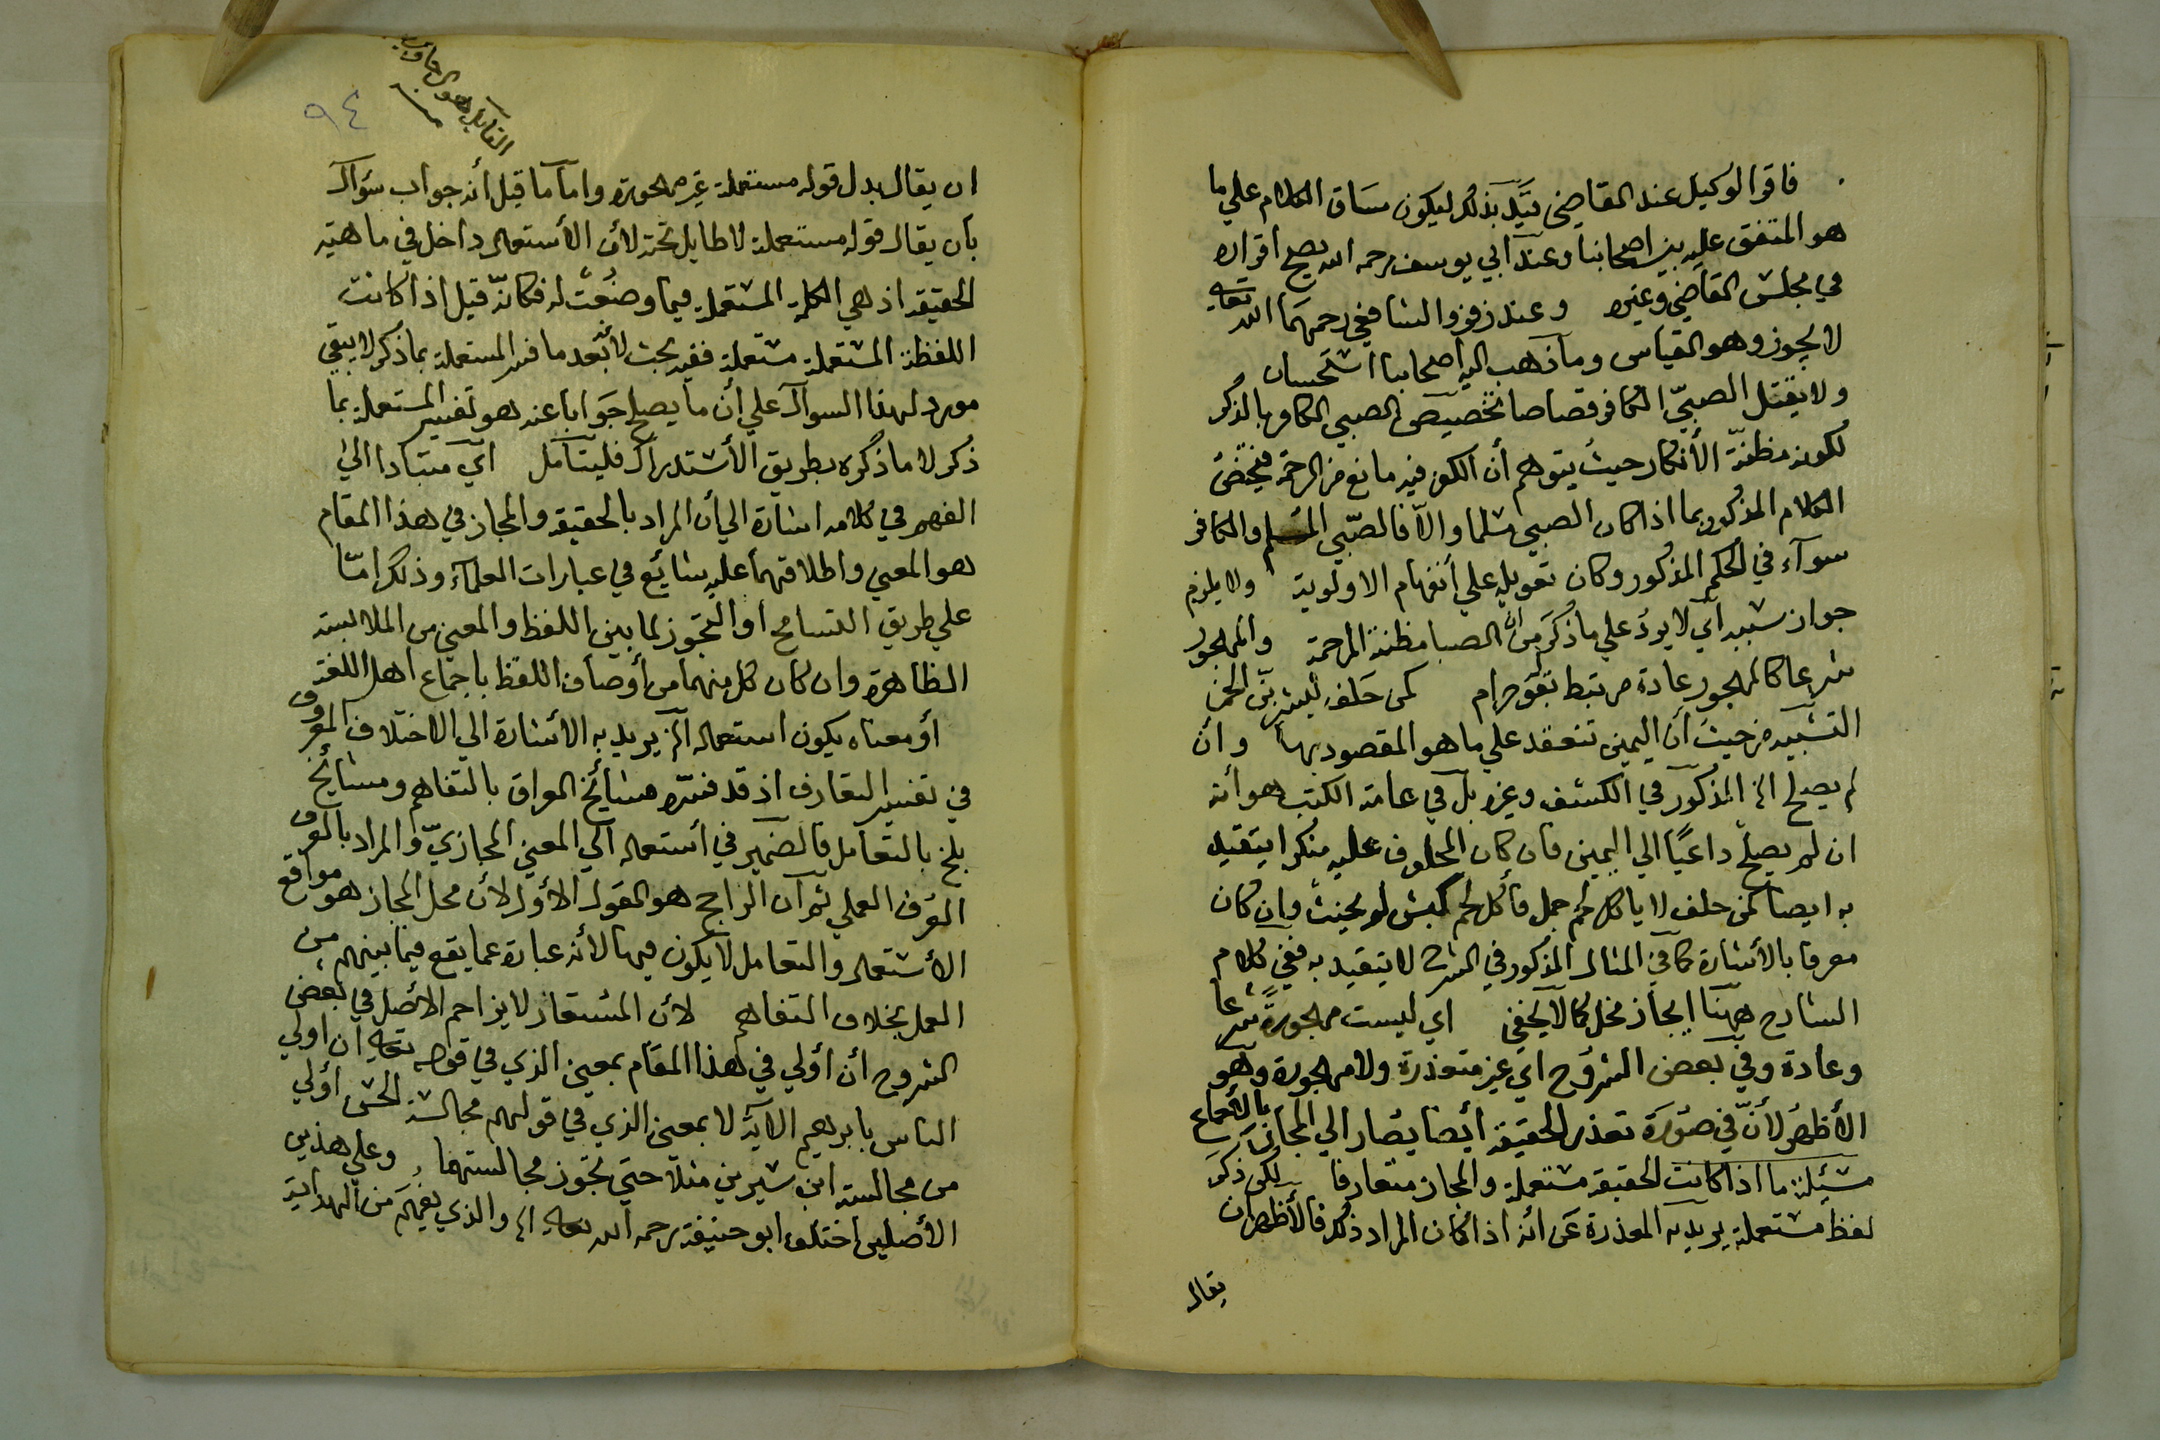 فاقرا لوكيل عند القاضي قيّد بذلك ليكون مساق الكلام علي ما
هو المتفق عليه بين اصحابنا وعند ابي يوسف رحمه الله يصح اقراره
في مجلس القاضي وغيره وعند زفر والشافعي رحمهما الله تعالى
لا يجوز وهو القياس وما ذهب اليه اصحابنا استحسان
ولا يقتل الصبيّ الكافر قصاصا تخصيص الصبي الكافر بالذكر
لكونه مظنّة الأنكار حيث يتوهم أن الكفر فيه مانع من الرحمة فيختص
الكلام المذكور بما اذا كان الصبي مسلما والّا فالصّبي المسلم والكافر
سوآء في الحكم المذكور وكان تعويله علي أنفهام الاولوية ولا يلزم
جواز سببه اي لا يردُ علي ما ذُكرَ من انّ الصبا مظنة المرحمة والمهجور
شرعا كالمهجور عادة مرتبط بقوله حرام كمن حَلف ليشربنّ الخمر
التشبيه من حيث أن اليمين تنعقد علي ما هو المقصود بها وان
لم يصلح الخ المذكور في الكشف وغيره بل في عامة الكتب هو أنه
ان لم يصلح داعيًا الي اليمين فان كان المحلوف عليه منكرا يتقيد
به ايضا كمن حلف لا ياكل لحم جمل فأكل لحم كبش لم يحنث وان كان
معرفا بالأشارة كما في المثال المذكور في الشرح لا يتقيد به ففي كلام
الشارح ههنا ايجاز مخل كما لا يخفي اي ليست مهجورةً شرعا
وعادة وفي بعض الشروح اي غير متعذرة ولا مهجورة وهو
الأظهرُ لأنّ في صورة تعذر الحقيقة أيضا يصار الي المجاز بالأجماع
مسئلة ما اذا كانت الحقيقة مستعملة والمجاز متعارفا لكن ذكرَ
لفظ مستعملة يريد به المعذرة عن انه اذا كان المراد ذلك فالأظهر ان
يقال
القايل هو الـ
٩٤
ان يقال بدل قوله مستعملة غير مهجورة وامآ ما قيل أنه جواب سؤال
بان يقال قوله مستعملة لا طايل تحته لأن الأستعمال داخل في ماهيّة
الحقيقة اذ هي الكلمة المستعملة فيما وضعت له فكانّه قيل اذا كانت
اللفظة المستعملة مستعملة ففيه بحث لأبعد ما فسر المستعملة بما ذكر لا يبقي
مورد لهذا السوال علي أن ما يصلح جَوَابا عنه هو تفسير المستعملة بما
ذكر لا ما ذكره بطريق الأستدراك فليتأمل اي متبادا الي
الفهم في كلامه اشارة الي أن المراد بالحقيقة والمجاز في هذا المقام
هو المعني واطلاقهما عليه شائع في عبارات العلمآء وذلك امّا
علي طريق التسامح او التجوّز لما بين اللفظ والمعني من الملابسة
الظاهرة وان كان كل منهما من أوصاف اللفظ باجماع اهل اللغة
أو معناه يكون استعماله الخ يريد به الأشارة الي الاختلاف المعروف
في تفسير التعارف اذ قد فسّره مشائخ العراق بالتفاهم ومشايخ
بلخ بالتعامل فالضمير في استعماله الي المعني المجازيّ والمراد بالعرف
العرف العملي ثم ان الراجح هو القول الأول لأن محل المجاز هو مواقع
الأستعمال والتعامل لا يكون فيها لأنه عبارة عما يقع فيما بينهم من
العمل بخلاف التفاهم لأن المستعار لا يزاحم الأصل في بعض
الشروح أن أولي في هذا المقام بمعني الذي في قوله تعالى ان اولي
الناس بابرهيم الآيّة لا بمعني الذي في قولهم مجالسة الحسن أولي
من مجالسة ابن سيرين مثلا حتي تجوز مجالستهما وعلي هذين
الأصلين اختلف ابو حنيفة رحمه الله تعالى الخ والذي يفهم من الهداية